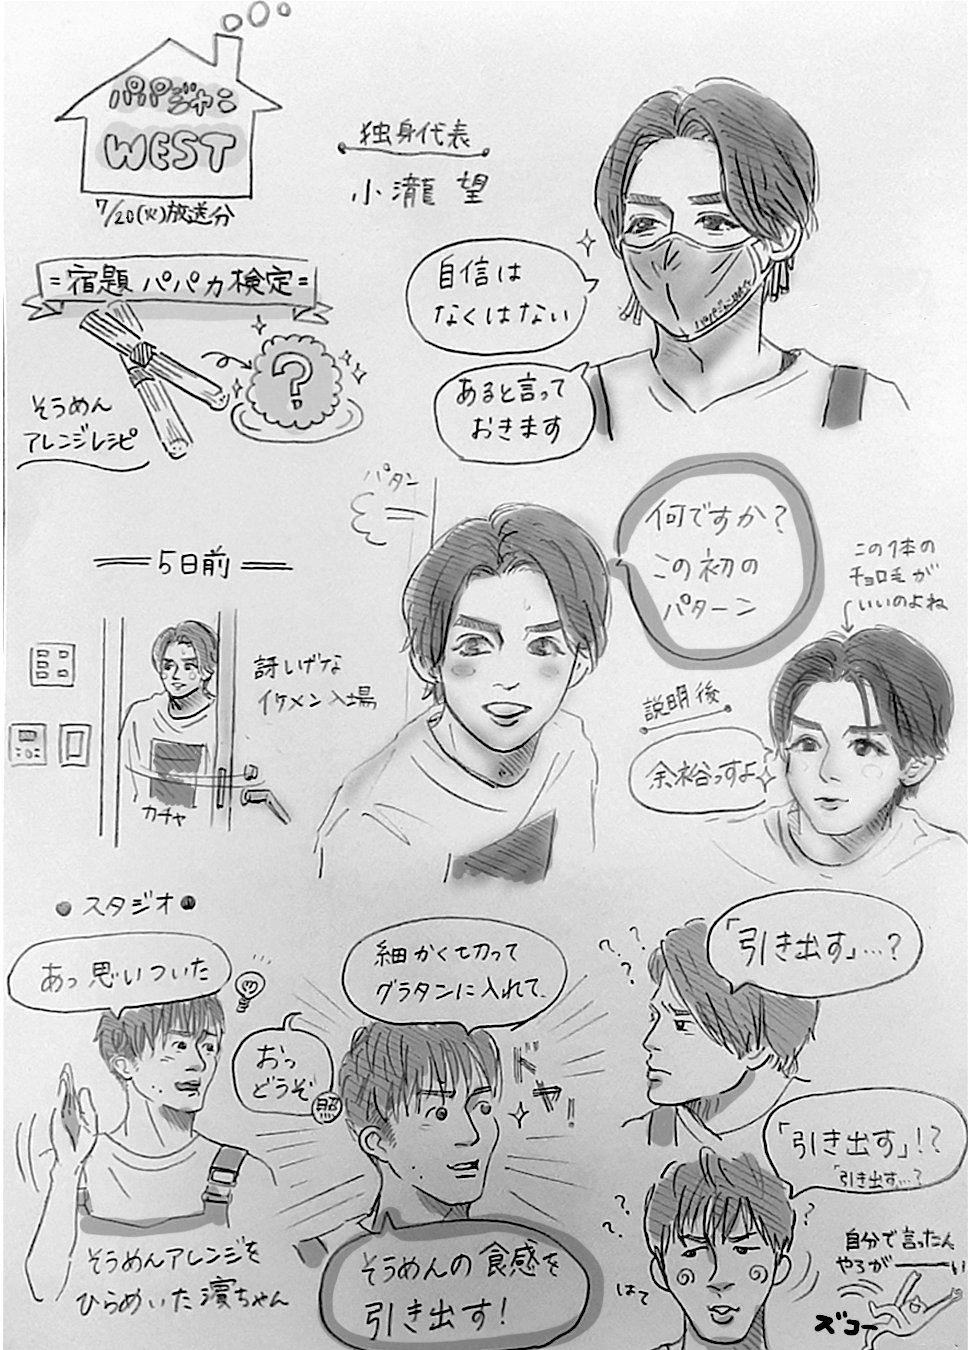 パパジャニ
WEST
7/20(火)放送分
独身代表
小瀧 望
自信は
なくはない
あると言って
おきます
=宿題 パパカ検定=
?
そうめん
アレンジレシピ
パタン
何ですか?
この初の
パターン
この1本の
チョロ毛が
いいのよね
5日前
訝しげな
イケメン入場
カチャ
説明後
余裕っすよ
スタジオ
あっ思いついた
おっ
どうぞ
照
細かく切って
グラタンに入れて
ドヤァ!
「引き出す」…?
? ? ?
そうめんアレンジを
ひらめいた濵ちゃん
そうめんの食感を
引き出す!
「引き出す」!?
「引き出す…?
? ? ?
はて
自分で言ったん
やろがーーい
ズコー